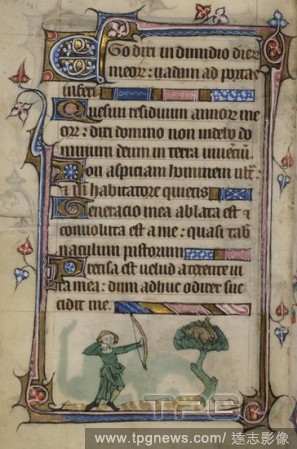 Ego dixi in dimidio dierum
meorum : uadam ad portas
inferi
Quesiui residuum annorum me
orum : dixi domino non uidebo do
minum deum in terra uiuentium
Non aspiciam hominem ultra :
et habitatorem quietis
Generacio mea ablata est et
conuoluta est a me : quasi tab
naculum pastorum
Precisa est uelud a texente ui
ta mea : dum adhuc ordirer suc
cidit me
TPG
www.tpgnews.com / 達志影像